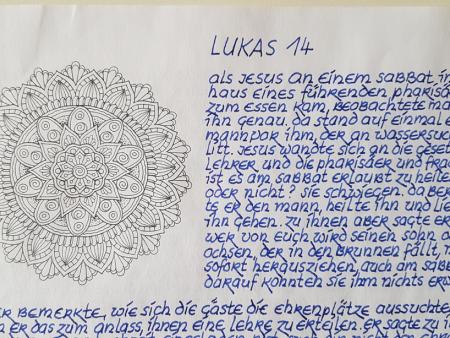 LUKAS 14
als Jesus an einem Sabbat in
haus eines führenden Pharisä
zum Essen kam, beobachtete ma
ihn genau. da stand auf einmal e
mann vor ihm, der an Wassersuc
litt. Jesus wandte sich an die Geset
lehrer und die Pharisäer und frag
ist es am Sabbat erlaubt zu heile
oder nicht? sie schwiegen. da ber
te er den mann, heilte ihn und lie
ihn gehen. zu ihnen aber sagte er
wer von euch wird seinen sohn o
ochsen, der in den Brunnen fällt, n
sofort herausziehen, auch am Sabb
darauf konnten sie ihm nichts erw
er bemerkte, wie sich die gäste die ehrenplätze aussuchte
er das zum anlass, ihnen eine lehre zu erteilen. er sagte zu i